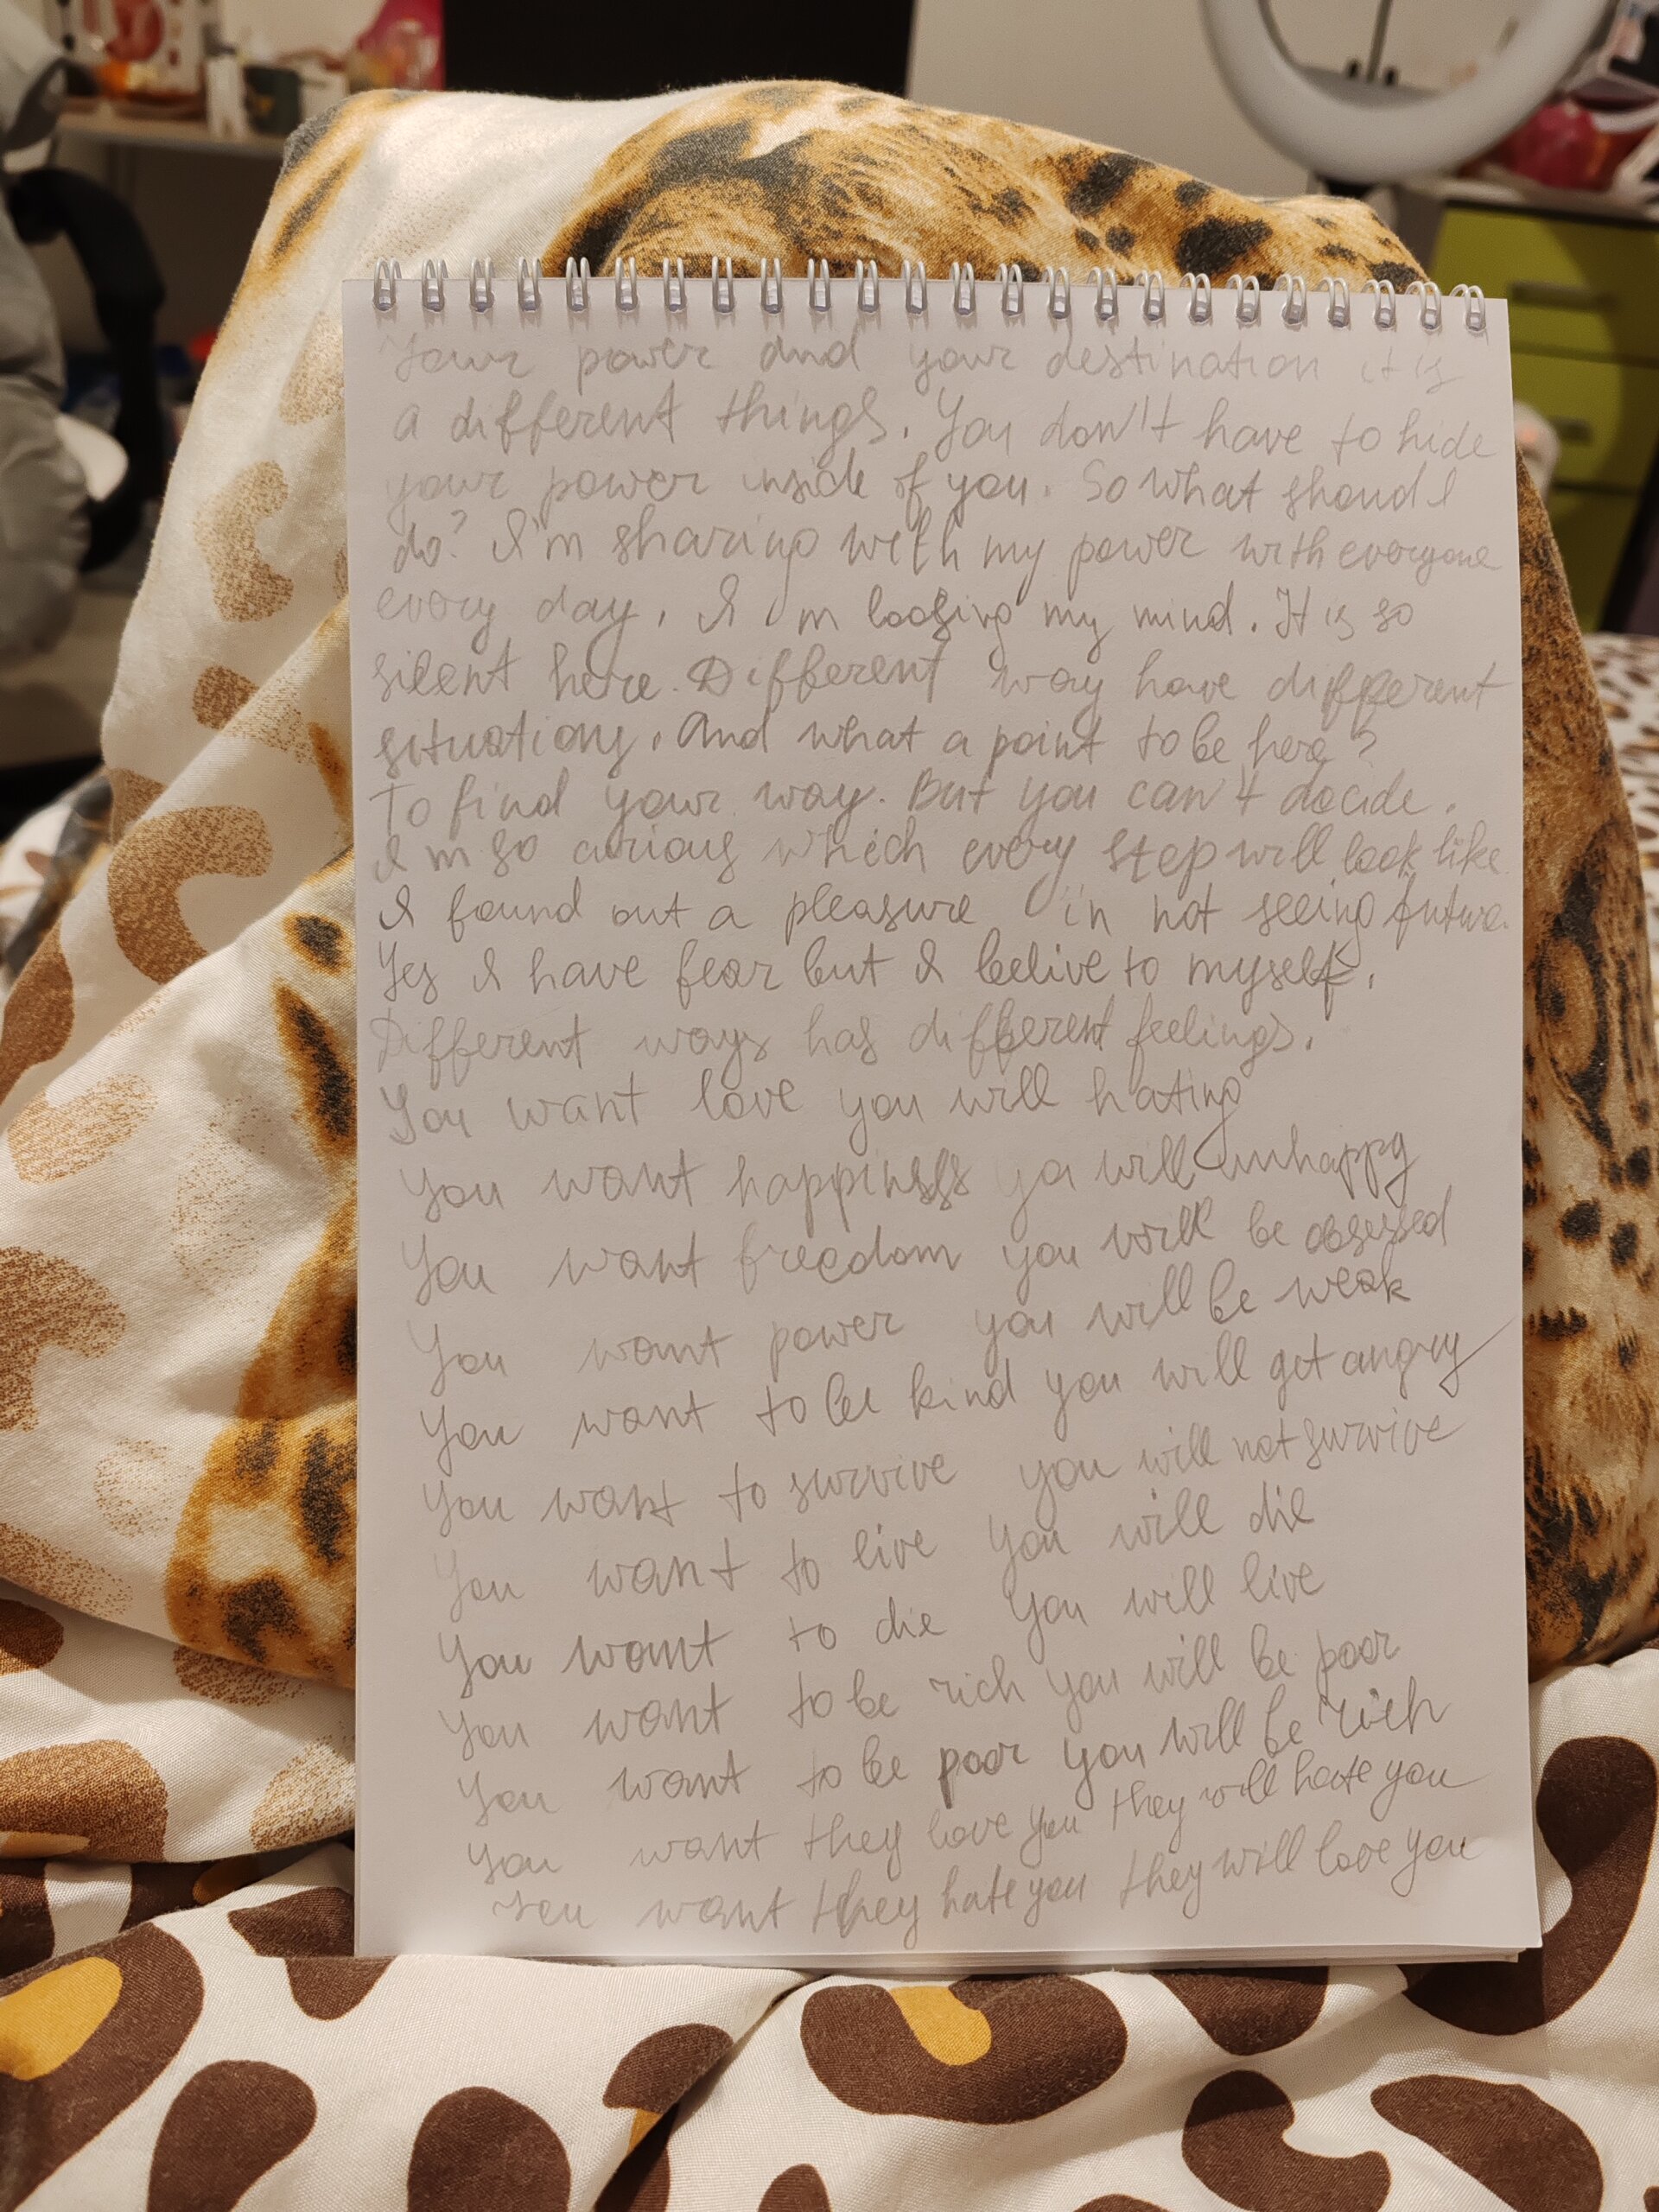 Your power and your destination it is
a different things. You don't have to hide
your power inside of you. So what shoud I
do? I'm sharing with my power with everyone
every day. I'm loosing my mind. It is so
silent here. Different way have different
situations. And what a point to be here?
To find your way. But you can't decide.
I'm so curious which every step will look like.
I found out a pleasure in not seeing future.
Yes I have fear but I belive to myself.
Different ways has different feelings.
You want love you will hating
You want happiness you will unhappy
You want freedom you will be obsessed
You want power you will be weak
You want to be kind you will get angry
You want to survive you will not survive
You want to live you will die
You want to die you will live
You want to be rich you will be poor
You want to be poor you will be rich
You want they love you they will hate you
You want they hate you they will love you